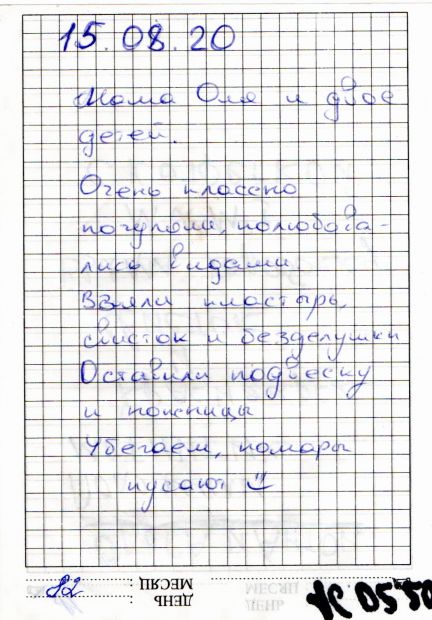 15.08.20
Мама Оля и двое
детей.
Очень классно
погуляли, полюбова-
лись видами
Взяли пластырь,
свисток и безделушки
Оставили подвеску
и ножницы
Убегаем, комары
кусают
82
МЕСЯЦ
ДЕНЬ
МЕСЯЦ
ДЕНЬ